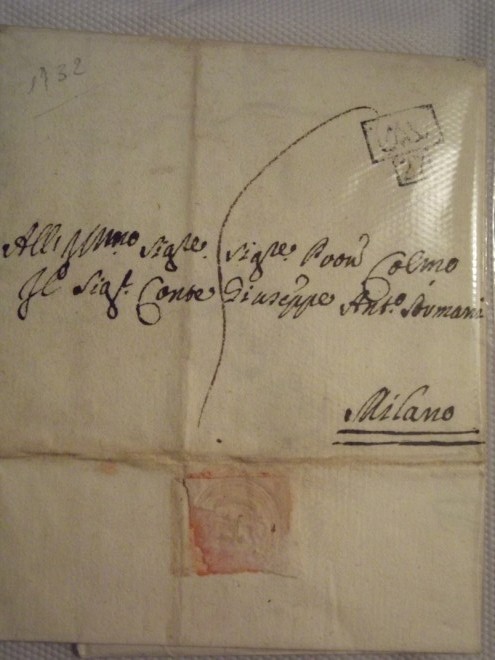 1732
All Illmo Sigre Sigre Pron Colmo
Il Sigr Conte Giuseppe Anto
Milano